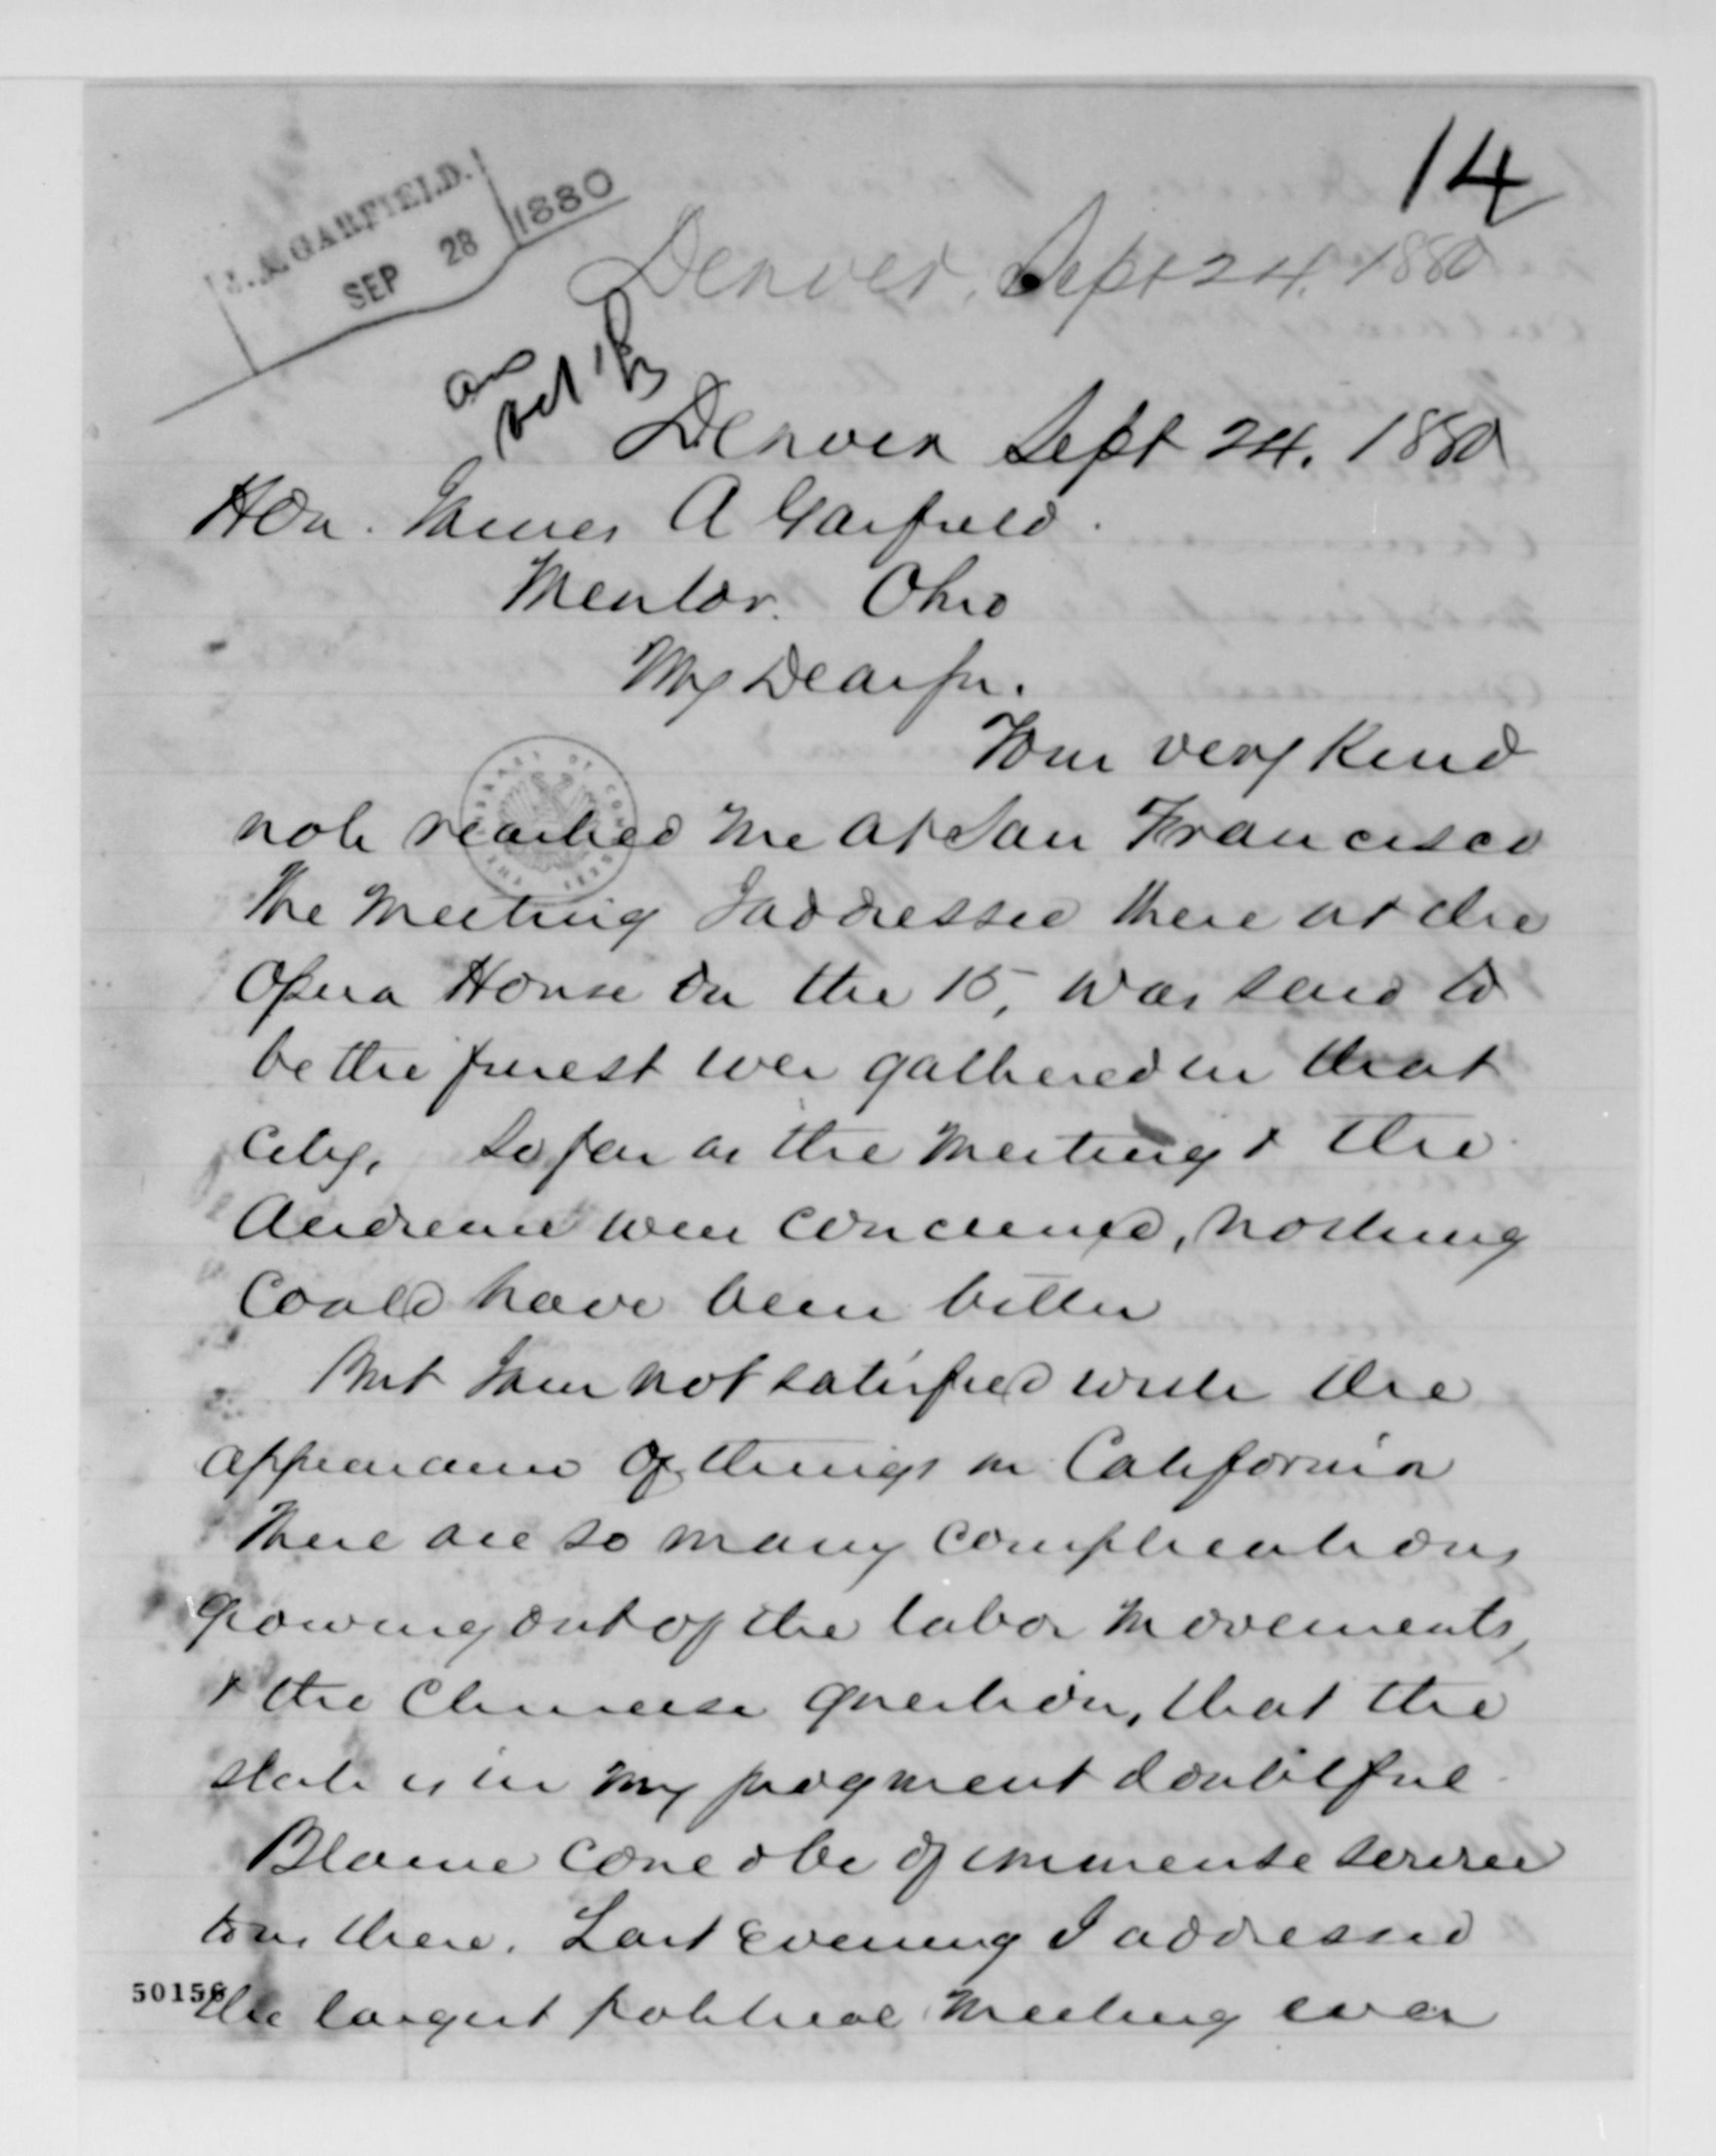 14
J. A. GARFIELD.
SEP 28 1880
Denver, Sept 24. 1880
Ans
Oct 1/80
Denver Sept 24. 1880
Hon. James A Garfield.
Mentor. Ohio
My Dear Sir.
Your very kind
note reached me at San Francisco
The meeting I addressed there at the
Opera House on the 15, was said to
be the finest ever gathered in that
City. So far as the meeting & the
Audience were concerned, nothing
Could have been better
But I am not satisfied with the
appearance of things in California
There are so many complications
growing out of the labor movements,
& the Chineese question, that the
state is in my judgment doubtful
Blaine could be of immense service
to us there. Last Evening I addressed
the largest political meeting ever
50156
LIBRARY OF CONGRESS